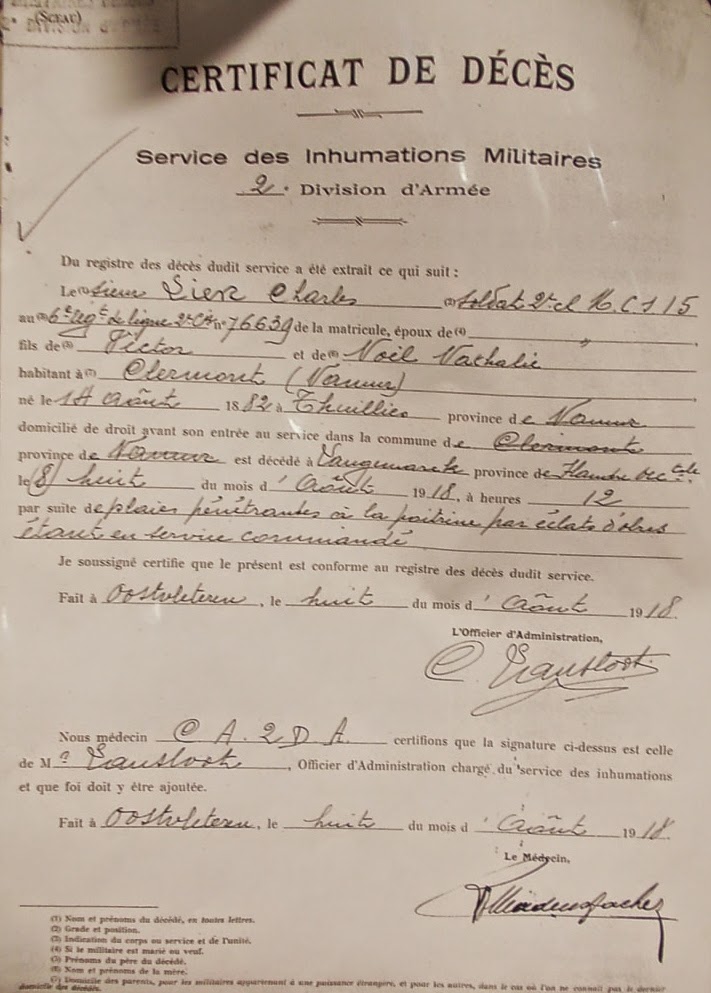 (Sceau)
DIVISION D'
CERTIFICAT DE DÉCÈS
Service des Inhumations Militaires
2e Division d'Armée
Du registre des décès dudit service a été extrait ce qui suit :
Le (1) Sieur Sierx Charles (2) Soldat 2e cl M. C 1 15
au (3) 6e Regt de ligne 2e Cie n° 76639 de la matricule, époux de (4) "
fils de (5) Victor et de (6) Noël Nathalie
habitant à (7) Clermont (Namur)
né le 14 Août 1882 à Thuillies province de Namur
domicilié de droit avant son entrée au service dans la commune de Clermont
province de Namur est décédé à Langemarck province de Flandre Occtale
le (8) huit du mois d'Août 1918, à heures 12
par suite de plaies pénétrantes à la poitrine par éclats d'obus
étant en service commandé
Je soussigné certifie que le présent est conforme au registre des décès dudit service.
Fait à Oostvleteren, le huit du mois d'Août 1918
L'Officier d'Administration,
Nous médecin C A. 2 D A. certifions que la signature ci-dessus est celle
de Mr, Officier d'Administration chargé du service des inhumations
et que foi doit y être ajoutée.
Fait à Oostvleteren, le huit du mois d'Août 1918
Le Médecin,
(1) Nom et prénoms du décédé, en toutes lettres.
(2) Grade et position.
(3) Indication du corps ou service et de l'unité.
(4) Si le militaire est marié ou veuf.
(5) Prénoms du père du décédé.
(6) Nom et prénoms de la mère.
(7) Domicile des parents, pour les militaires appartenant à une puissance étrangère, et pour les autres, dans le cas où l'on ne connaît pas le dernier
domicile des décédés.